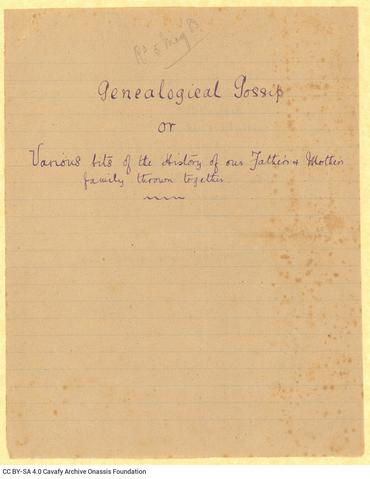 Genealogical Gossip
or
Various bits of the History of our Father & Mother
family thrown together
CC BY-SA 4.0 Cavafy Archive Onassis Foundation